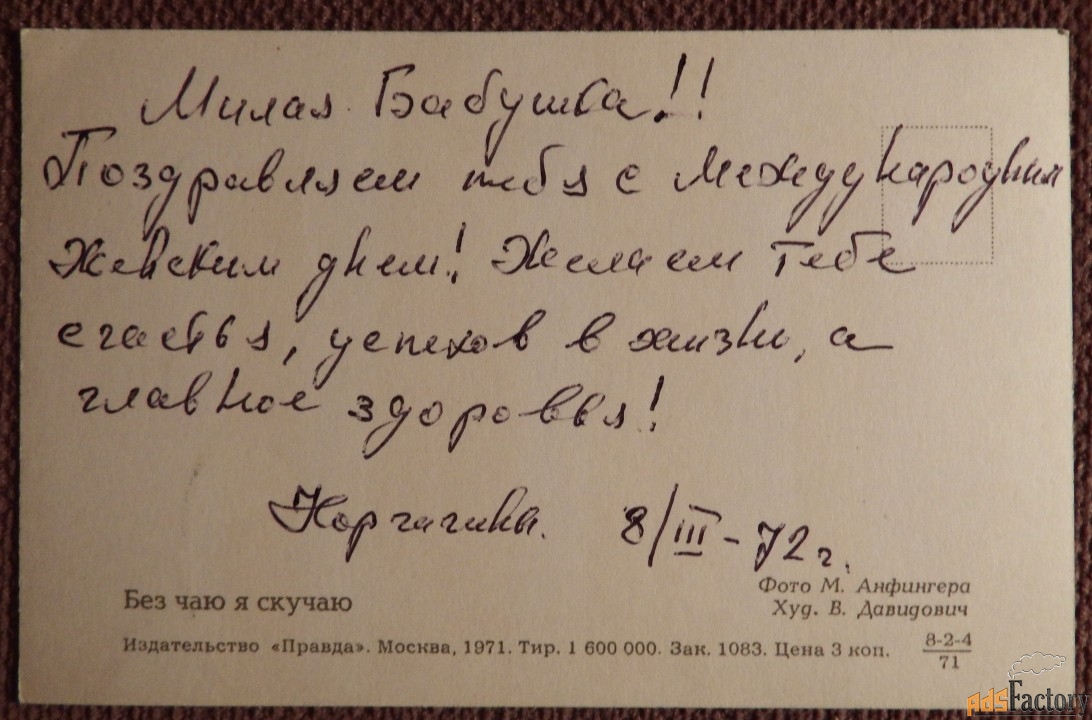 Милая Бабушка!!
Поздравляем тебя с Международным
Женским днем! Желаем тебе
счастья, успехов в жизни, а
главное здоровья!
Корчагины. 8/III-72г.
Фото М. Анфингера
Без чаю я скучаю
Худ. В. Давидович
Издательство «Правда». Москва, 1971. Тир. 1 600 000. Зак. 1083. Цена 3 коп.
8-2-4
71
AdsFactory